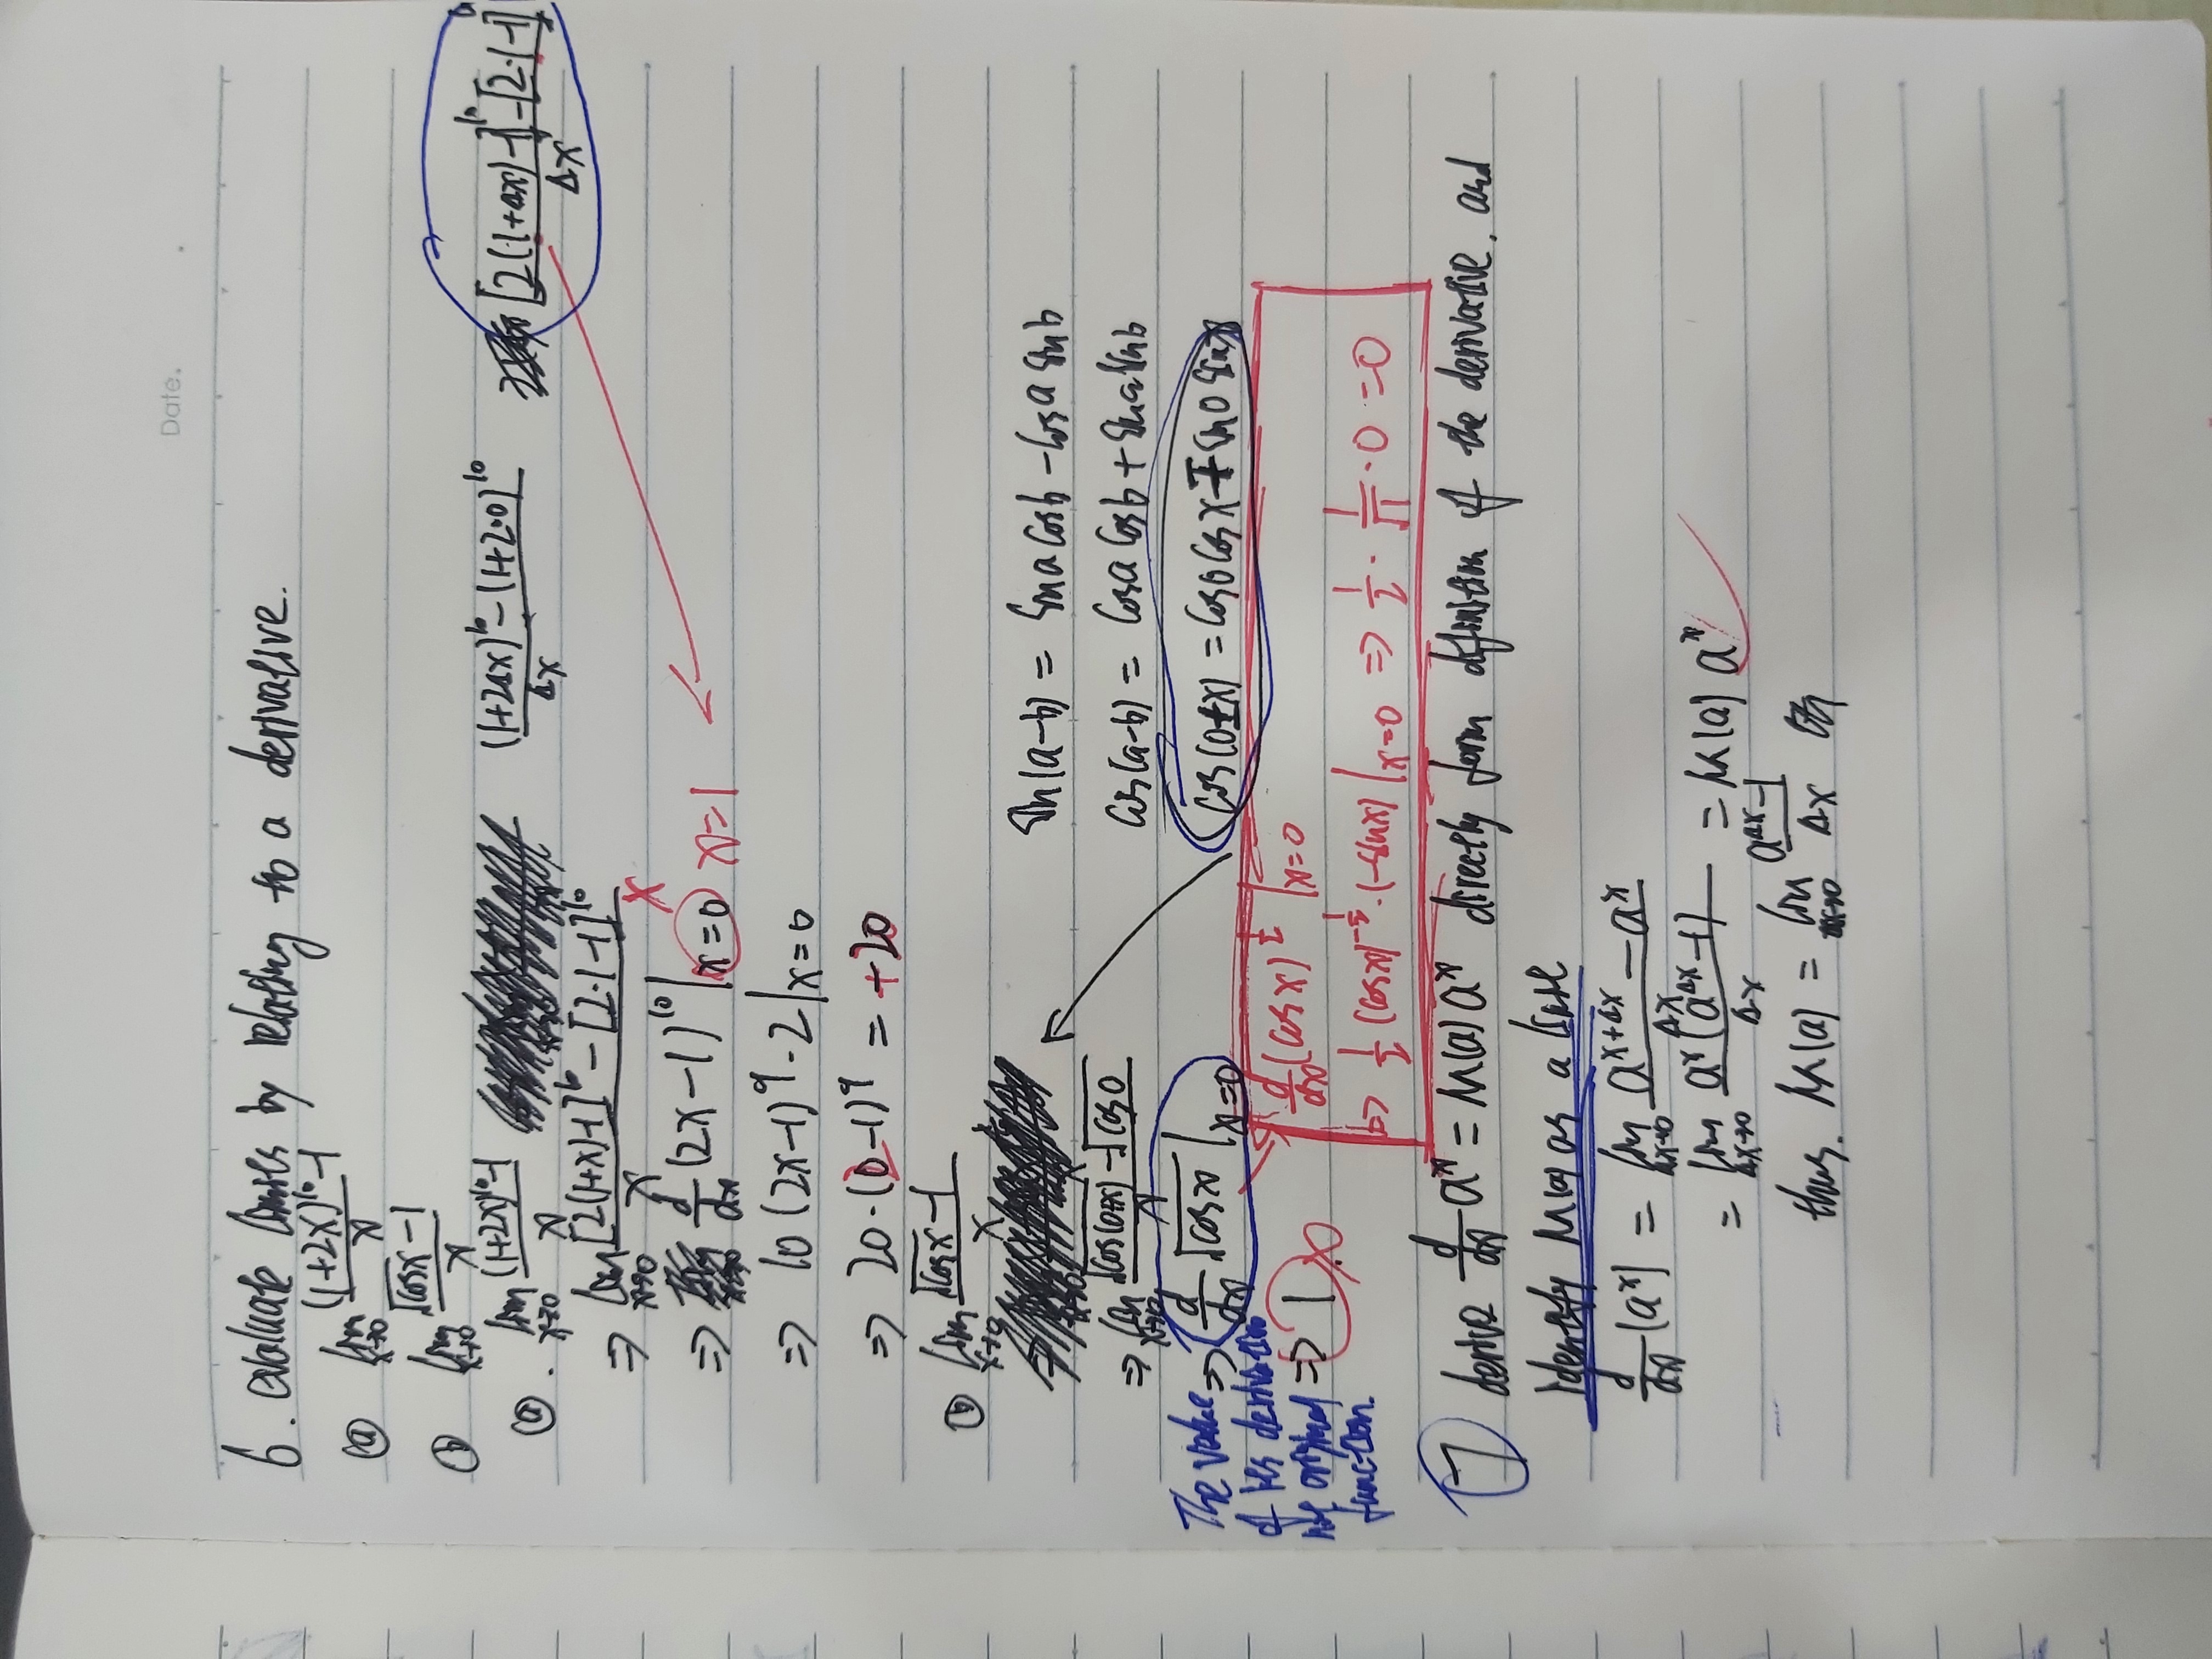 Date. .
6. evaluate limits by relating to a derivative.
ⓐ lim x→0 ((1+2x)^10 - 1)/x
ⓑ lim x→0 (√cosx - 1)/x
ⓐ. lim x→0 ((1+2x)^10 - 1)/x ((1+2Δx)^10 - (1+2·0)^10)/Δx ([2(1+Δx)-1]^10 - [2·1-1]^10)/Δx
⇒ lim x→0 ([2(1+x)-1]^10 - [2·1-1]^10)/x
x
⇒ d/dx (2x-1)^10 |x=0 x=1
⇒ 10(2x-1)^9·2 |x=0
⇒ 20·(0-1)^9 = +20
ⓑ lim x→0 (√cosx - 1)/x
sin(a-b) = sina cosb - cosa sinb
⇒ lim x→0 (√cos(0+x) - √cos0)/x
cos(a-b) = cosa cosb + sina sinb
⇒ d/dx √cosx |x=0
cos(0±x) = cos0 cosx ∓ sin0 sinx
The value
of its derivative
not original
function.
⇒ 1 0
d/dx (cosx)^½ |x=0
⇒ ½ (cosx)^-½ · (-sinx) |x=0 ⇒ ½ · 1/√1 · 0 = 0
⑦ derive d/dx a^x = M(a) a^x directly form definition of the derivative. and
identify M(a) as a limit
d/dx (a^x) = lim Δx→0 (a^(x+Δx) - a^x)/Δx
= lim Δx→0 a^x(a^Δx - 1)/Δx = M(a) a^x
thus. M(a) = lim Δx→0 (a^Δx - 1)/Δx